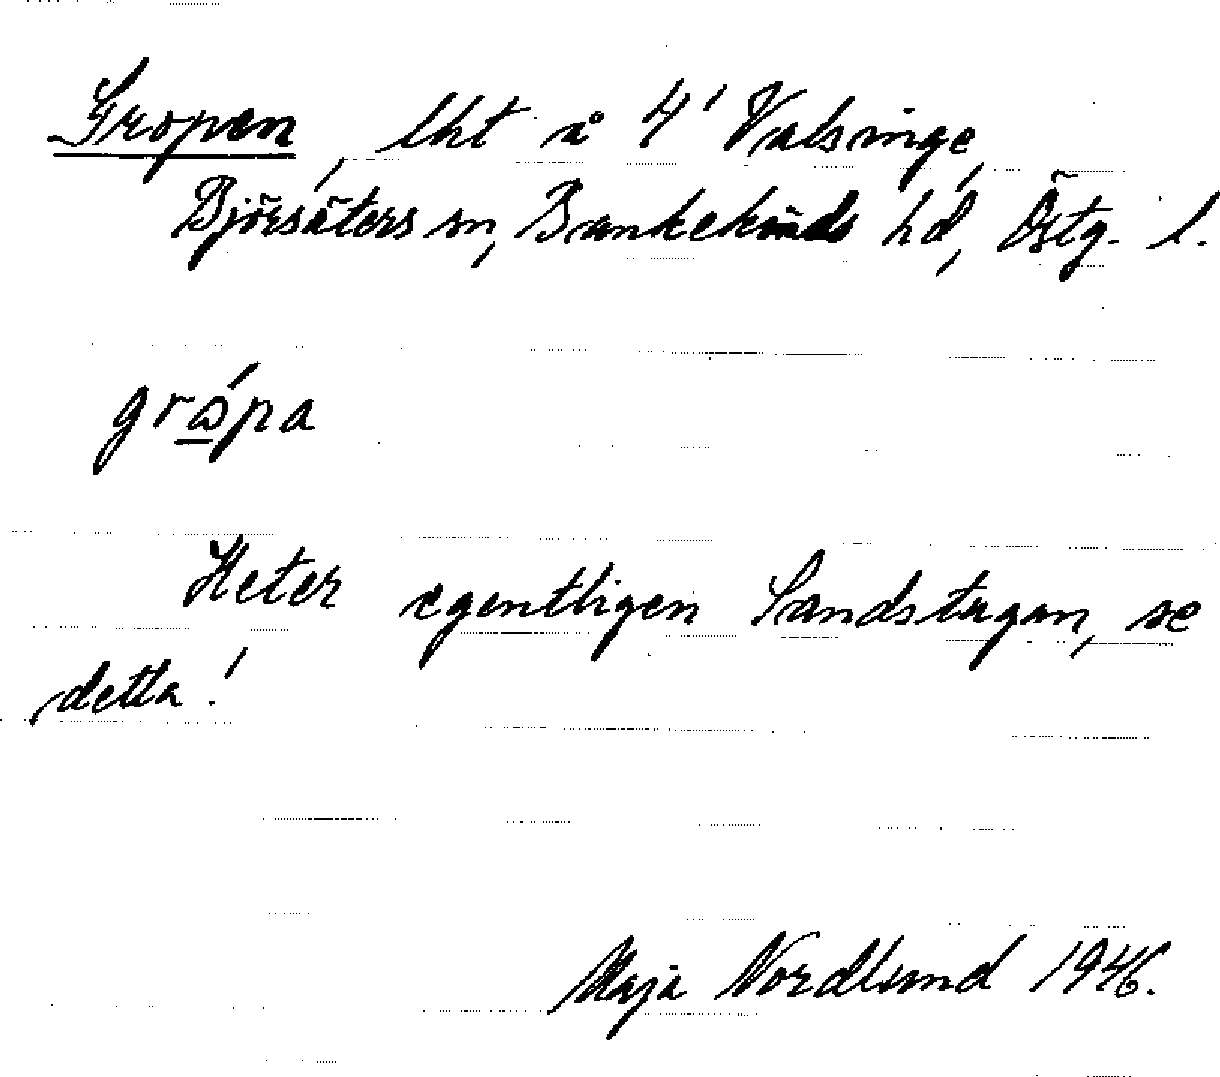 Gropen, lht å 4' Valsinge,
Björsäters sn, Bankekinds hd, Östg. l.
grǻpa
Heter egentligen Sandstugan, se
detta!
Maja Nordlund 1946.